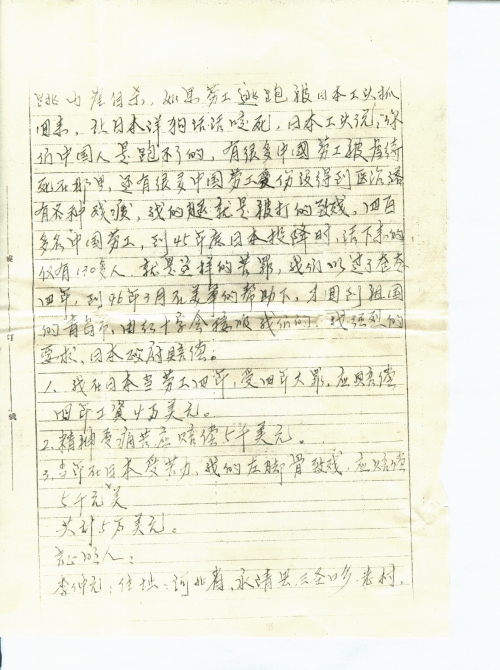 跳山崖自杀，如果劳工逃跑被日本工头抓
回来，让日本洋狗活活咬死，日本工头说，你
们中国人是跑不了的，有很多中國劳工被虐待
死在那里，还有很多中國劳工受伤没得到医治落
有各种残疾，我的腿就是被打的致残。四百
多名中国劳工，到45年底日本投降时，活下来的
仅有130多人，就是这样的苦罪，我们以过了
四年，到46年3月在美军的帮助下，才回到祖国
的青岛市，由红十字会接收我们的，我强烈的
要求，日本政府赔偿。
1、我在日本当劳工四年，受四年大罪，应赔偿
四年工資4万美元。
2.精神受痛苦应赔偿5千美元。
3.当年在日本受苦力，我的左脚骨致残，应赔偿
5千元美
共计5万美元。
证明人：
李仲元：住址：河北省，永清县，三圣口乡 村，